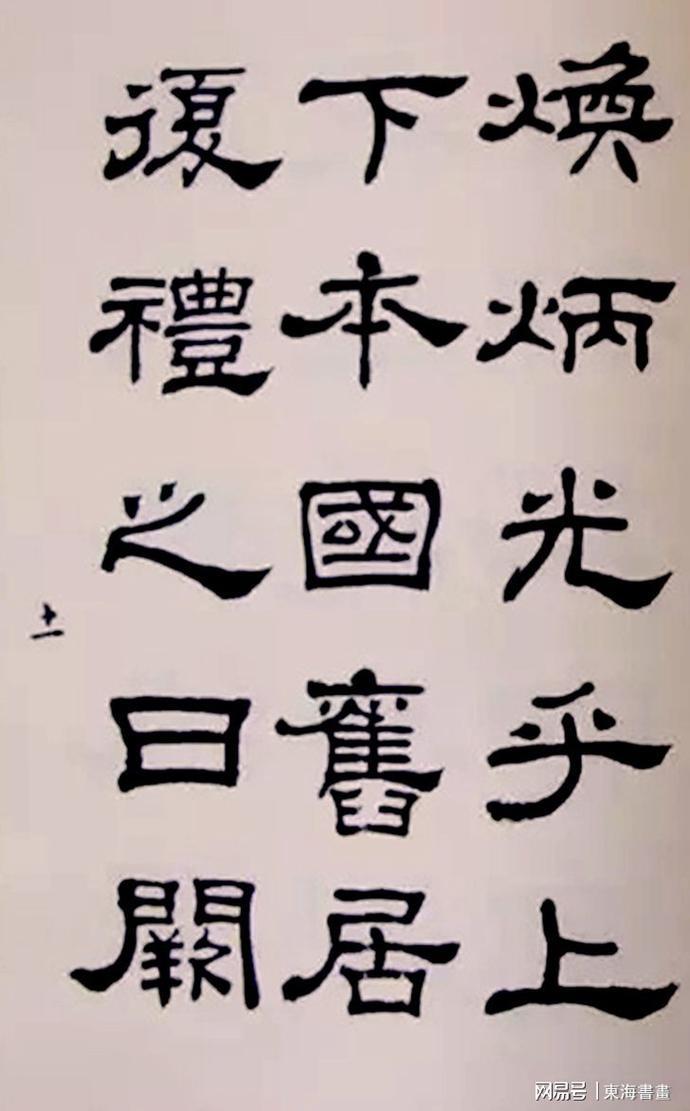 煥炳光乎上
下本國舊居
復禮之日闕
十一
网易号 | 東海書畫